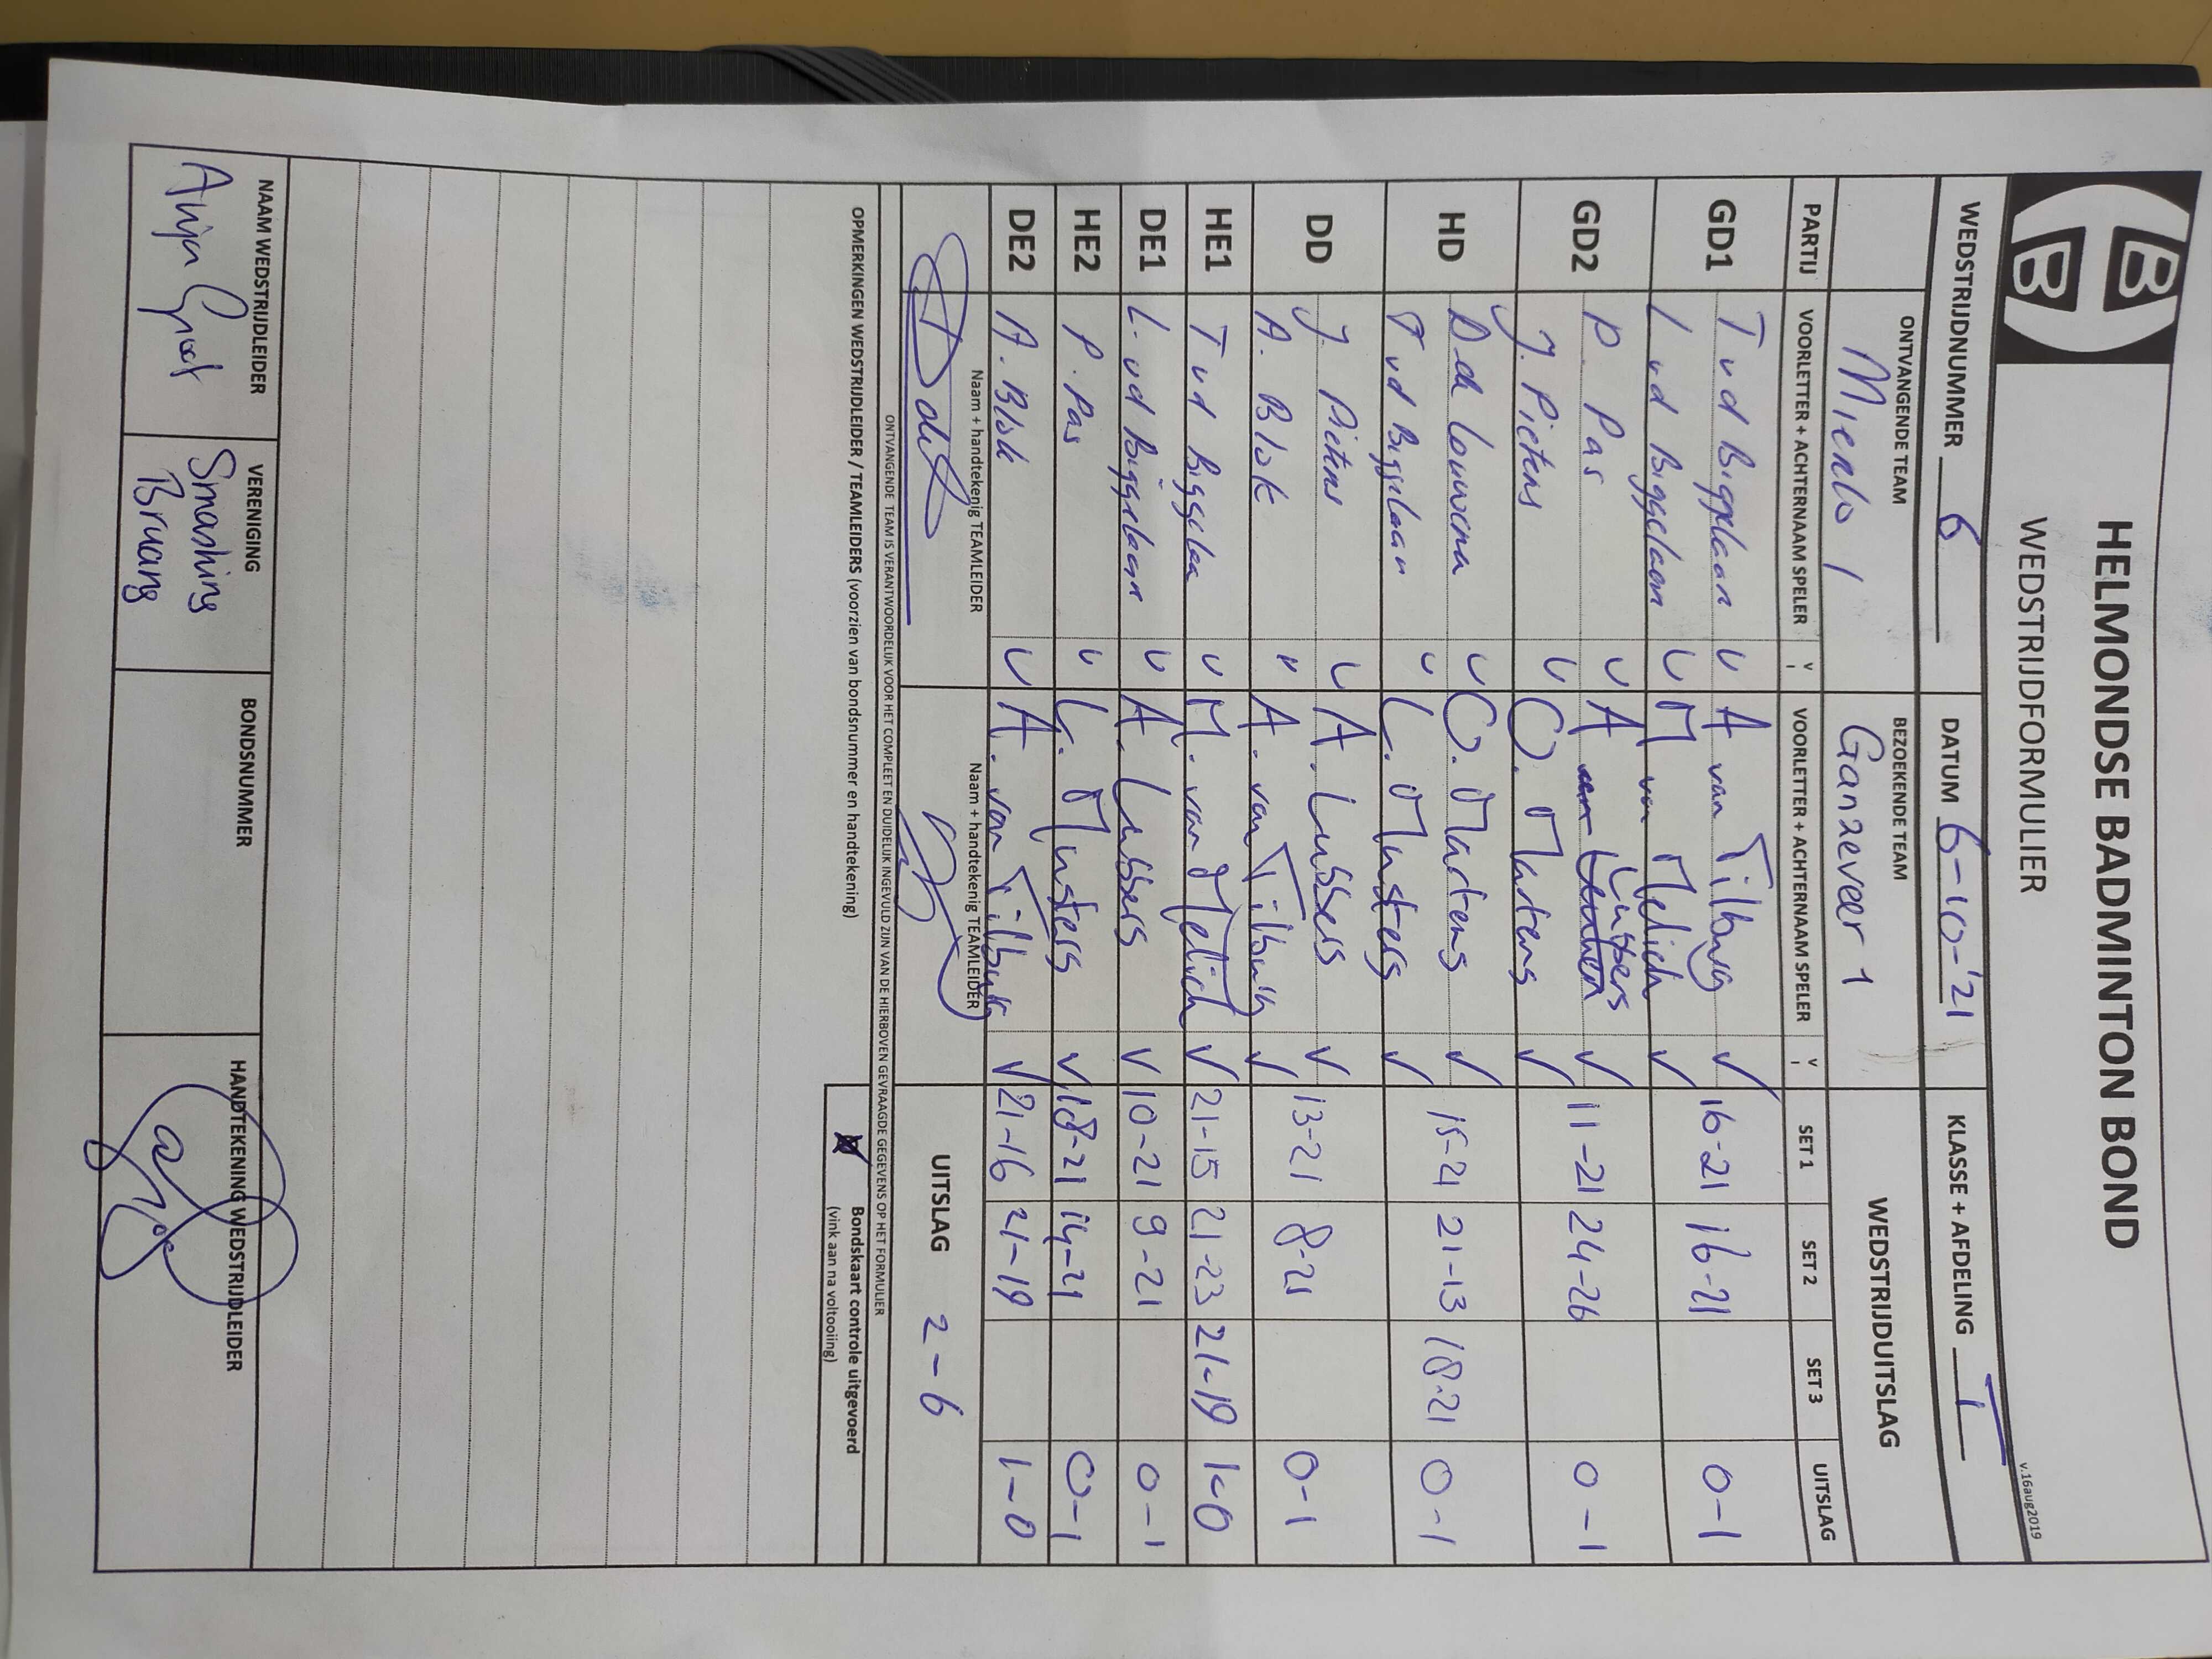 HB
B
HELMONDSE BADMINTON BOND
WEDSTRIJDFORMULIER
v.16aug2019
WEDSTRIJDNUMMER 6 DATUM 6-10-'21 KLASSE + AFDELING I
ONTVANGENDE TEAM BEZOEKENDE TEAM WEDSTRIJDUITSLAG
Mierlo 1 Ganzeveer 1
PARTIJ VOORLETTER + ACHTERNAAM SPELER V VOORLETTER + ACHTERNAAM SPELER V SET 1 SET 2 SET 3 UITSLAG
GD1 T vd Biggelaar v A van Tilburg v 16-21 16-21 0-1
L vd Biggelaar v M van Melick v
GD2 P. Pas v A Lubbers v 11-21 24-26 0-1
J. Pieters v O. Martens v
HD D de Louwerea v O. Martens v 15-21 21-13 18-21 0-1
T vd Biggelaar v L. Musters v
DD J. Pieters v A. Lubbers v 13-21 8-21 0-1
A. Blok v A. van Tilburg v
HE1 T vd Biggelaa v M. van Melick v 21-15 21-23 21-19 1-0
DE1 L. vd Biggelaar v A. Lubbers v 10-21 9-21 0-1
HE2 P. Pas v L. Musters v 18-21 14-21 0-1
DE2 A. Blok v A. van Tilburg v 21-16 21-19 1-0
Naam + handtekenig TEAMLEIDER Naam + handtekenig TEAMLEIDER UITSLAG 2-6
ONTVANGENDE TEAM IS VERANTWOORDELIJK VOOR HET COMPLEET EN DUIDELIJK INGEVULD ZIJN VAN DE HIERBOVEN GEVRAAGDE GEGEVENS OP HET FORMULIER
OPMERKINGEN WEDSTRIJDLEIDER / TEAMLEIDERS (voorzien van bondsnummer en handtekening)
Bondskaart controle uitgevoerd
(vink aan na voltooiing)
NAAM WEDSTRIJDLEIDER VERENIGING BONDSNUMMER HANDTEKENING WEDSTRIJDLEIDER
Anja Smashing
Bruang